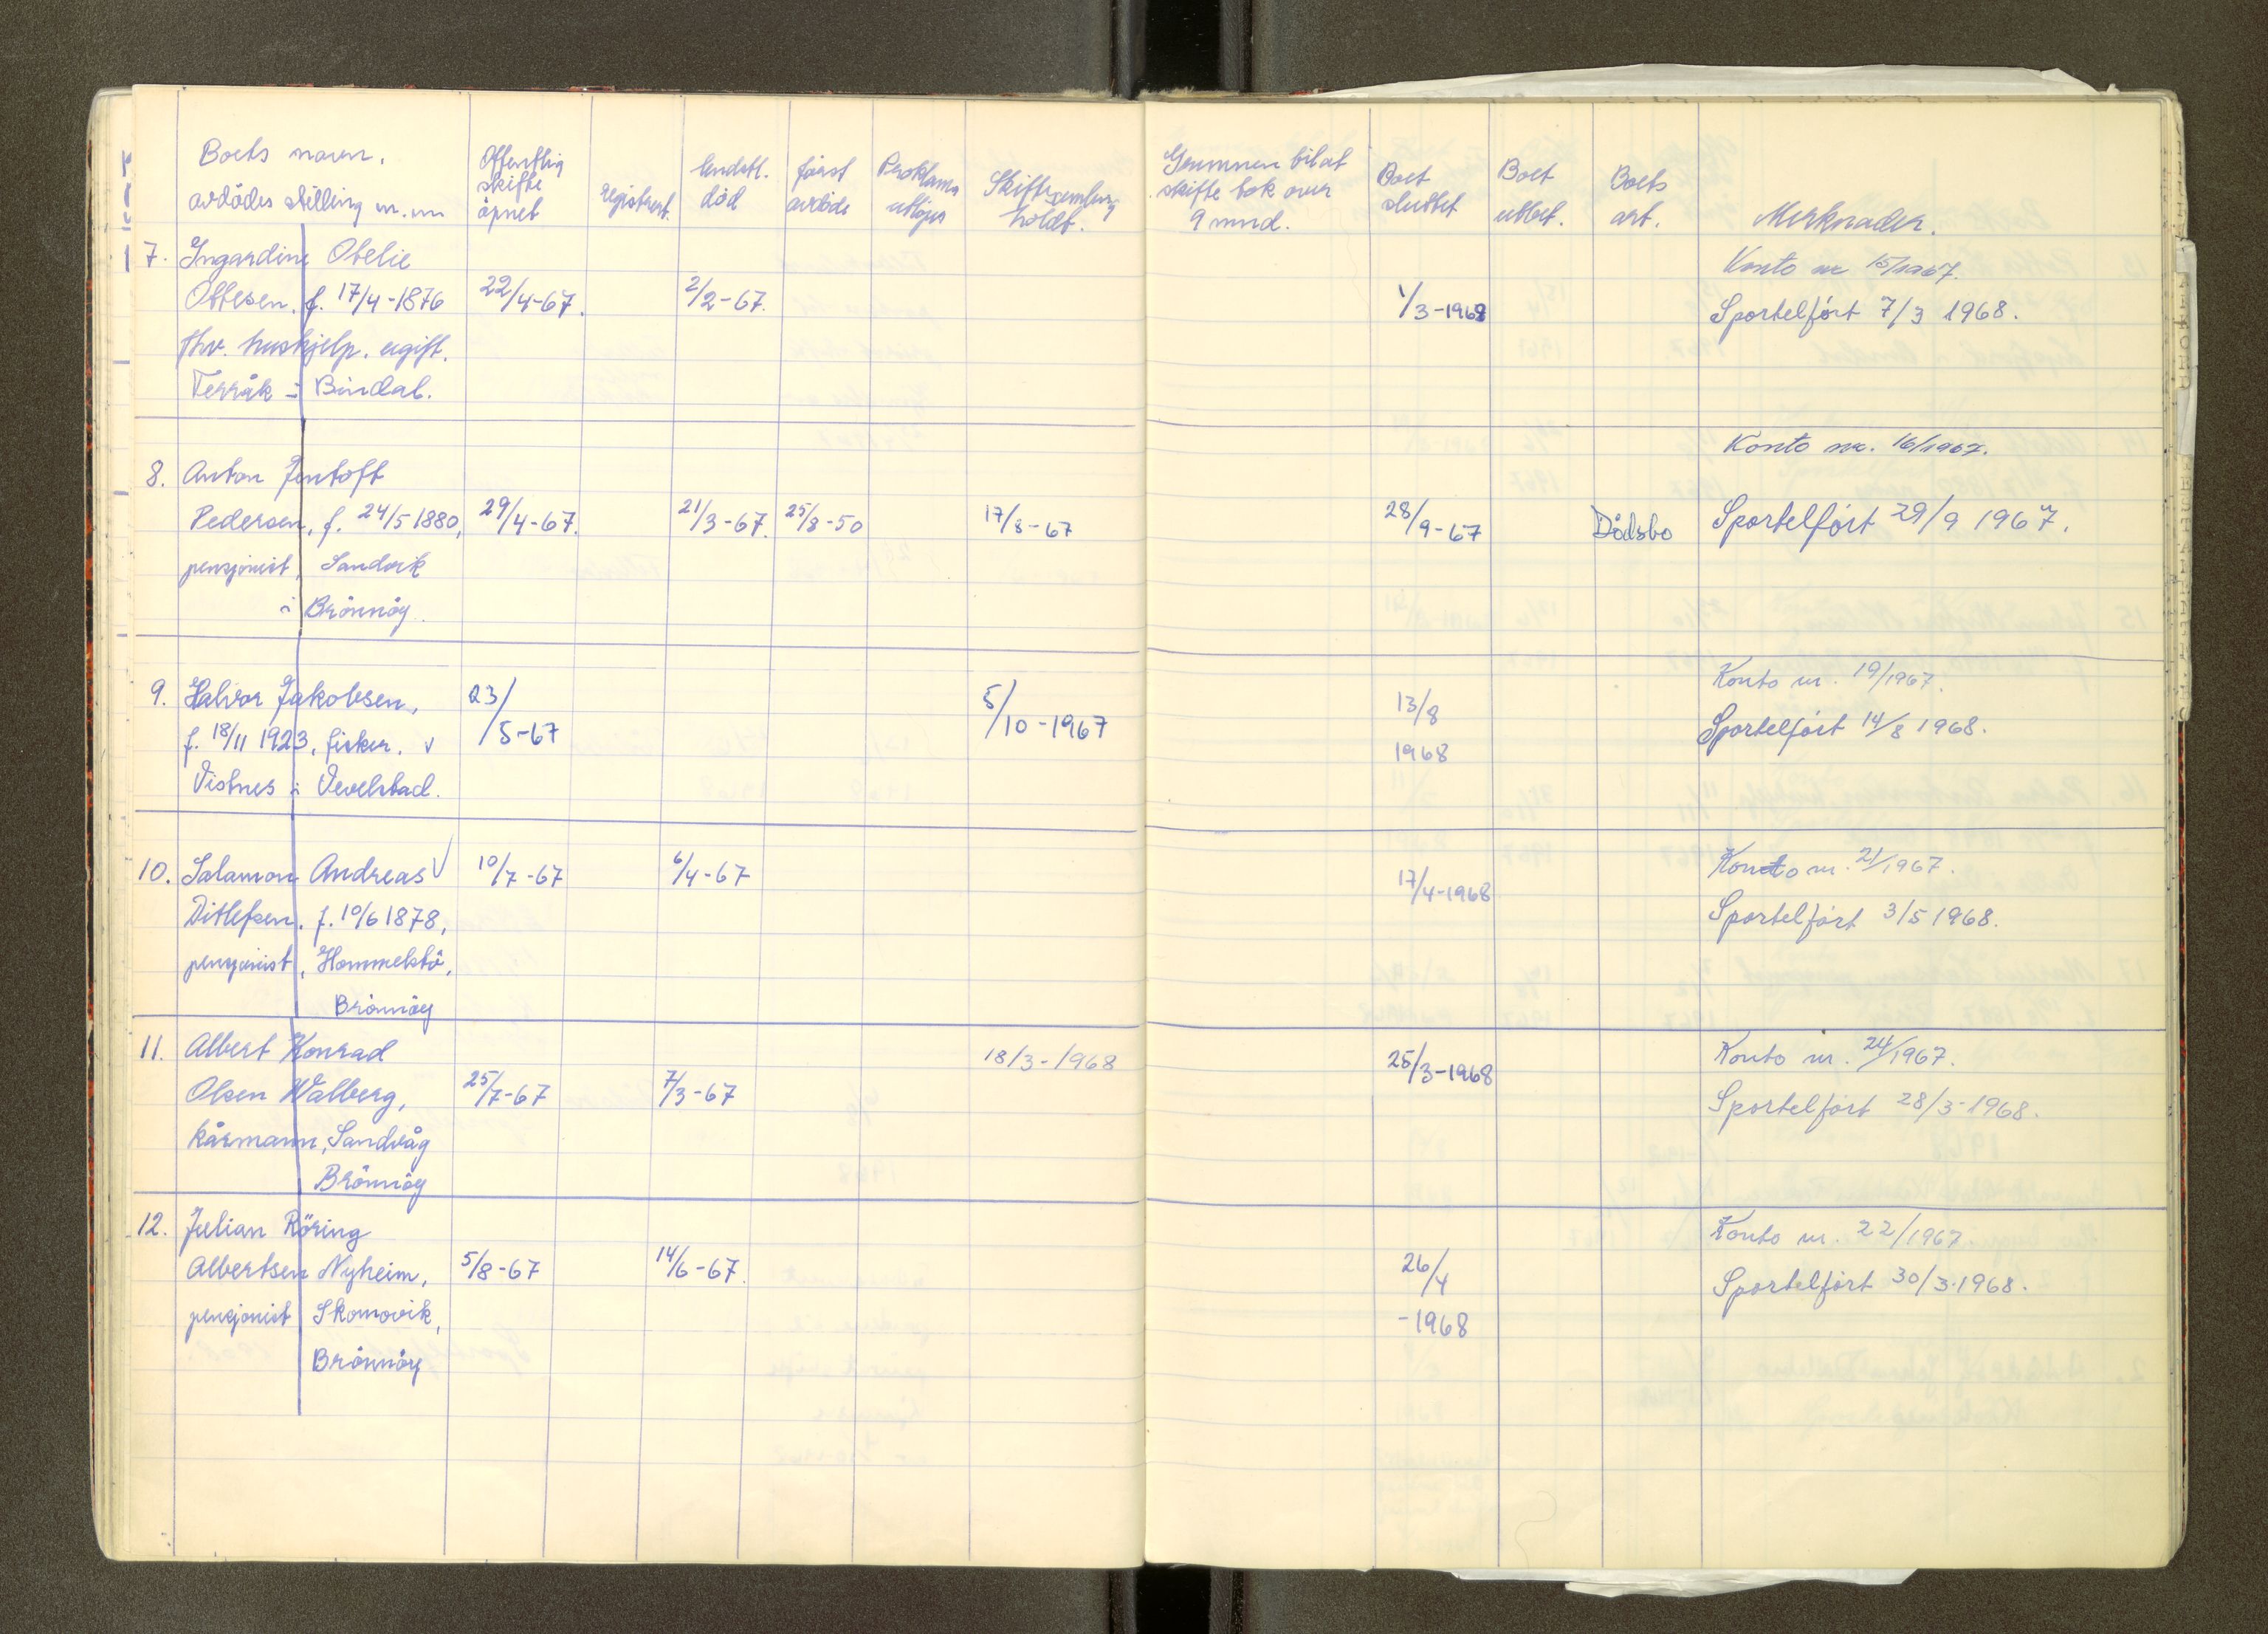 Boets navn,
avdödes stilling m.m
Offentlig
skifte
åpnet
registrert.
Anmeldt.
död
först
avdöde
Proklama
utløper
Skiftesamling
holdt.
Grunnen til at
skifte tok over
9 mnd.
Boet
sluttet
Boet
utlot.
Boets
art.
Merknader.
7. Ingardine Otelie
Konto nr 15/1967.
Ottesen, f. 17/4-1876 22/4-67. 2/2-67. 1/3-1968 Sportelført 7/3 1968.
fhv. huskjelp. ugift.
Terråk i Bindal.
Konto nr. 16/1967.
8. Anton Jentoft
Pedersen, f. 24/5 1880, 29/4-67. 21/3-67. 25/8-50 17/8-67 28/9-67 Dödsbo Sportelført 29/9 1967.
pensjonist, Sandvik
i Brönnöy.
Konto nr. 19/1967.
9. Halvor Jakobsen, 23/5-67 5/10-1967 13/8 1968
f. 18/11 1923, fisker. v Sportelført 14/8 1968.
Vistnes i Vevelstad.
Konto nr. 21/1967.
10. Salamon Andreas √ 10/7-67 6/4-67 17/4-1968
Ditlefsen, f. 10/6 1878, Sportelført 3/5 1968.
pensjonist, Hommelstö,
Brönnöy
11. Albert Konrad 18/3-1968 25/3-1968 Konto nr. 24/1967.
Olsen Walberg, 25/7-67 7/3-67 Sportelført 28/3-1968.
kårmann, Sandvåg
Brönnöy
12. Julian Röring Konto nr. 22/1967.
Albertsen Nyheim, 5/8-67 14/6-67. 26/4 Sportelført 30/3-1968.
pensjonist Skomovik, -1968
Brönnöy